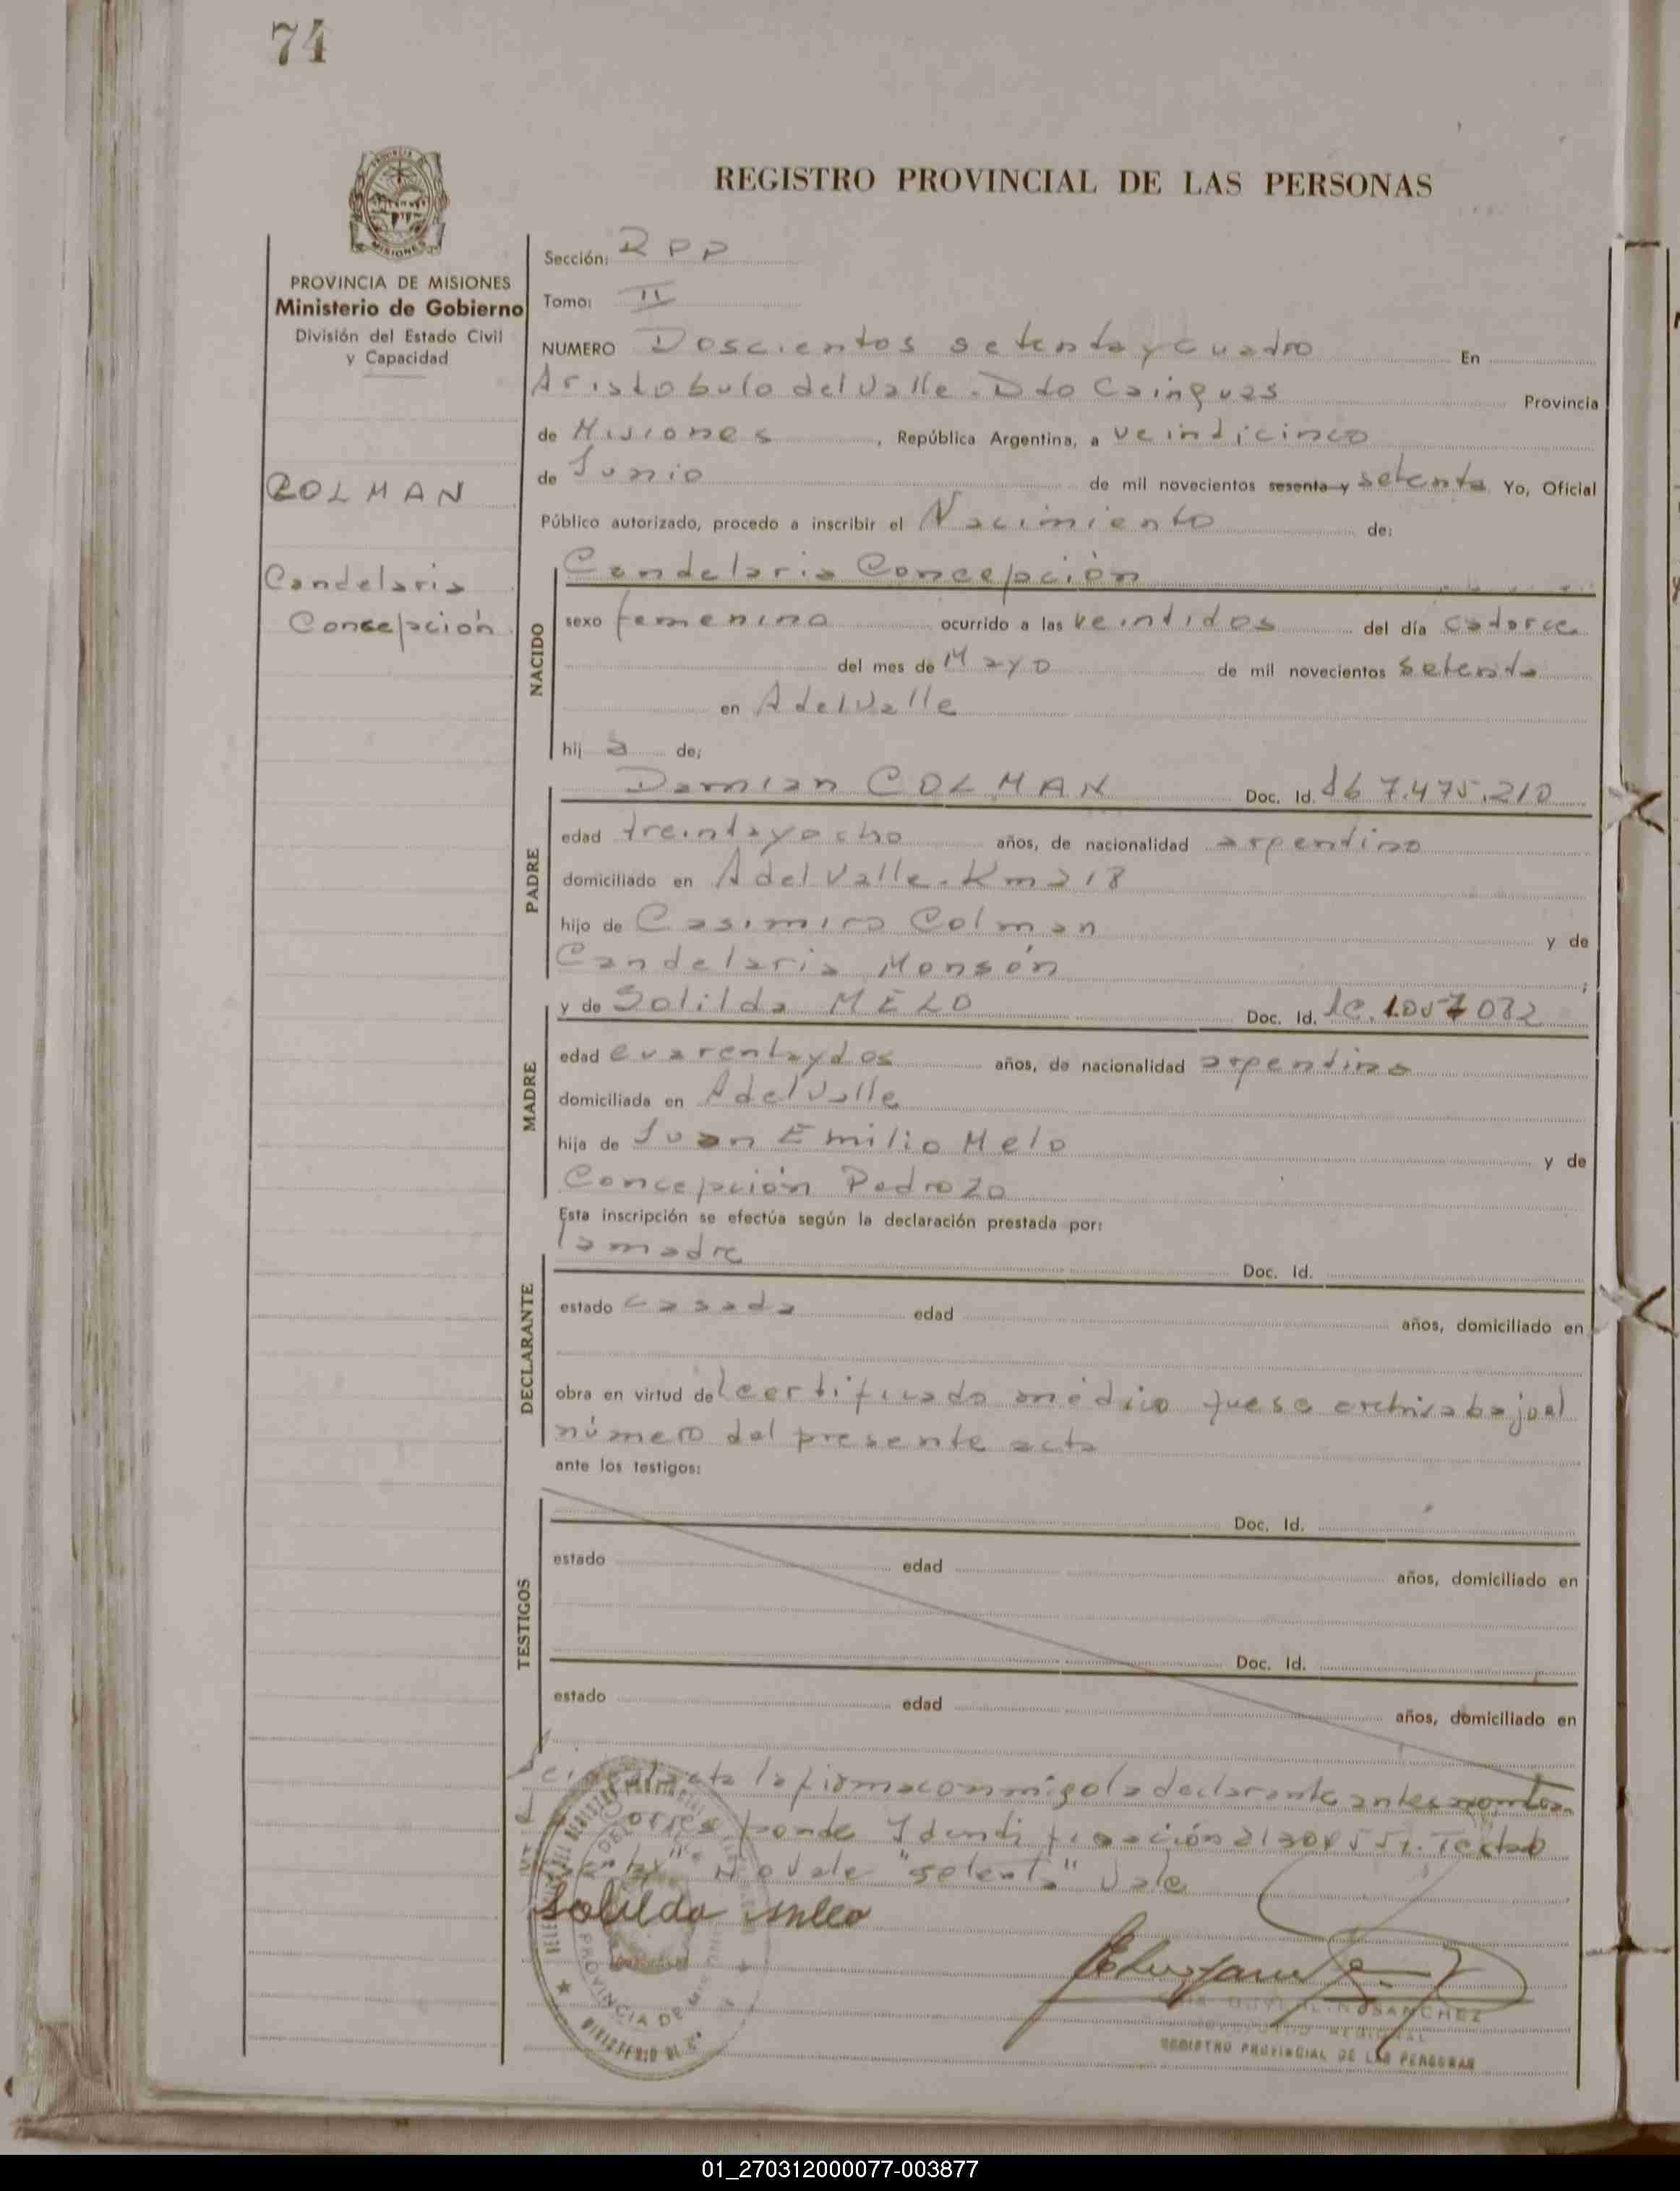 74
REGISTRO PROVINCIAL DE LAS PERSONAS
MISIONES
PROVINCIA DE MISIONES
Ministerio de Gobierno
División del Estado Civil
y Capacidad
COLMAN
Candelaria
Concepción
Sección: RPP
Tomo: II
NUMERO Doscientos setenta y cuatro En
Aristobulo del Valle. Dto Cainguas Provincia
de Misiones, República Argentina, a veinticinco
de Junio de mil novecientos sesenta y setenta Yo, Oficial
Público autorizado, procedo a inscribir el Nacimiento de:
NACIDO
Candelaria Concepción
sexo femenino ocurrido a las veintidos del día catorce
del mes de Mayo de mil novecientos setenta
en A del Valle
hij a de;
PADRE
Damian COLMAN Doc. Id. 7.475.210
edad treintayocho años, de nacionalidad argentino
domiciliado en A del Valle. Km 218
hijo de Casimiro Colman y de
Candelaria Monsón ;
MADRE
y de Solilda MELO Doc. Id. lc. 1.057 082
edad cuarentaydos años, de nacionalidad argentina
domiciliada en A del Valle
hija de Juan Emilio Melo y de
Concepción Pedrozo
Esta inscripción se efectúa según la declaración prestada por:
DECLARANTE
la madre Doc. Id.
estado casada edad años, domiciliado en
obra en virtud del certificado médico que se archiva bajo el
número del presente acta
ante los testigos:
TESTIGOS
Doc. Id.
estado edad años, domiciliado en
Doc. Id.
estado edad años, domiciliado en
acta la firma conmigo la declarante antes
corresponde Identificación Testado
No vale "setenta" Vale
Solilda Melo
PROVINCIA DE
SANCHEZ
REGISTRO PROVINCIAL DE LAS PERSONAS
01_270312000077-003877